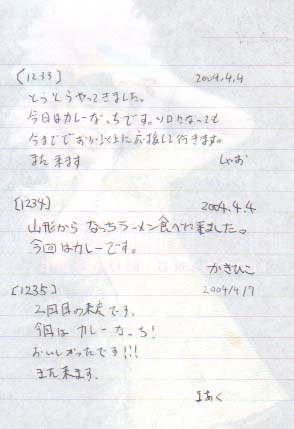 [1233] 2004.4.4
とうとうやってきました。
今日はカレーなっちです。ソロになっても
今まで以上に応援して行きます。
また来ます しゃお
[1234] 2004.4.4
山形からなっちラーメン食べに来ました。
今回はカレーです。
かきひこ
[1235] 2004/4/7
2回目の来店です。
今日はカレーなっち!
おいしかったです!!!
また来ます.
まあく